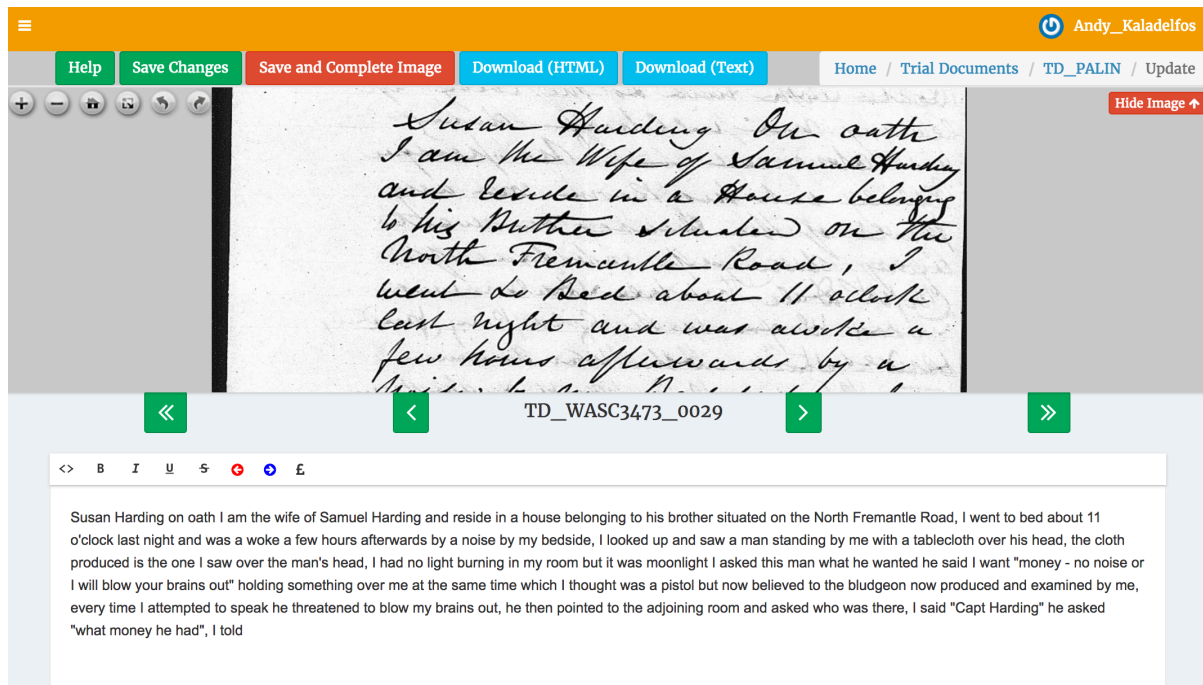 Andy_Kaladelfos
Help Save Changes Save and Complete Image Download (HTML) Download (Text) Home / Trial Documents / TD_PALIN / Update
Hide Image
Susan Harding On oath
I am the Wife of Samuel Harding
and reside in a House belonging
to his Brother situated on the
North Fremantle Road, I
went to Bed about 11 oclock
last night and was awoke a
few hours afterwards by a
TD_WASC3473_0029
<> B I U S £
Susan Harding on oath I am the wife of Samuel Harding and reside in a house belonging to his brother situated on the North Fremantle Road, I went to bed about 11
o'clock last night and was a woke a few hours afterwards by a noise by my bedside, I looked up and saw a man standing by me with a tablecloth over his head, the cloth
produced is the one I saw over the man's head, I had no light burning in my room but it was moonlight I asked this man what he wanted he said I want "money - no noise or
I will blow your brains out" holding something over me at the same time which I thought was a pistol but now believed to the bludgeon now produced and examined by me,
every time I attempted to speak he threatened to blow my brains out, he then pointed to the adjoining room and asked who was there, I said "Capt Harding" he asked
"what money he had", I told